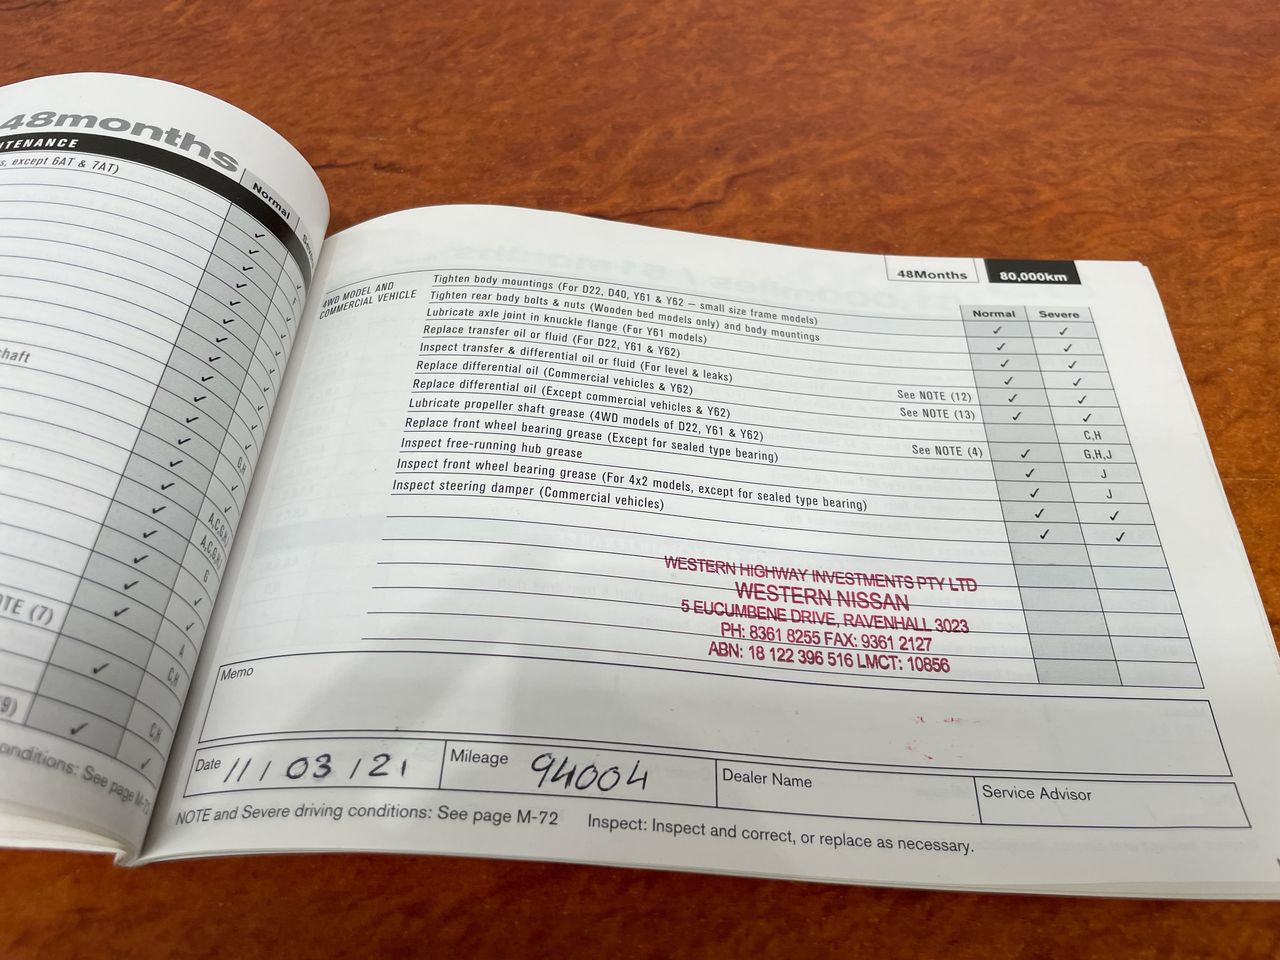 48months
TENANCE
s, except 6AT & 7AT)
Normal
haft
G,H
A,C,G,H,
A,C,G,H,
G
OTE (7)
A
C,H
9)
C,H
onditions: See page M-72
48Months
80,000km
4WD MODEL AND
COMMERCIAL VEHICLE
Normal Severe
Tighten body mountings (For D22, D40, Y61 & Y62 – small size frame models) ✓ ✓
Tighten rear body bolts & nuts (Wooden bed models only) and body mountings ✓ ✓
Lubricate axle joint in knuckle flange (For Y61 models) ✓ ✓
Replace transfer oil or fluid (For D22, Y61 & Y62) ✓ ✓
Inspect transfer & differential oil or fluid (For level & leaks) See NOTE (12) ✓ ✓
Replace differential oil (Commercial vehicles & Y62) See NOTE (13) ✓ ✓
Replace differential oil (Except commercial vehicles & Y62) C,H
Lubricate propeller shaft grease (4WD models of D22, Y61 & Y62) See NOTE (4) ✓ G,H,J
Replace front wheel bearing grease (Except for sealed type bearing) ✓ J
Inspect free-running hub grease ✓ J
Inspect front wheel bearing grease (For 4x2 models, except for sealed type bearing) ✓ ✓
Inspect steering damper (Commercial vehicles) ✓ ✓
WESTERN HIGHWAY INVESTMENTS PTY LTD
WESTERN NISSAN
5 EUCUMBENE DRIVE, RAVENHALL 3023
PH: 8361 8255 FAX: 9361 2127
ABN: 18 122 396 516 LMCT: 10856
Memo
Date 11/03/21 Mileage 94004 Dealer Name Service Advisor
NOTE and Severe driving conditions: See page M-72 Inspect: Inspect and correct, or replace as necessary.